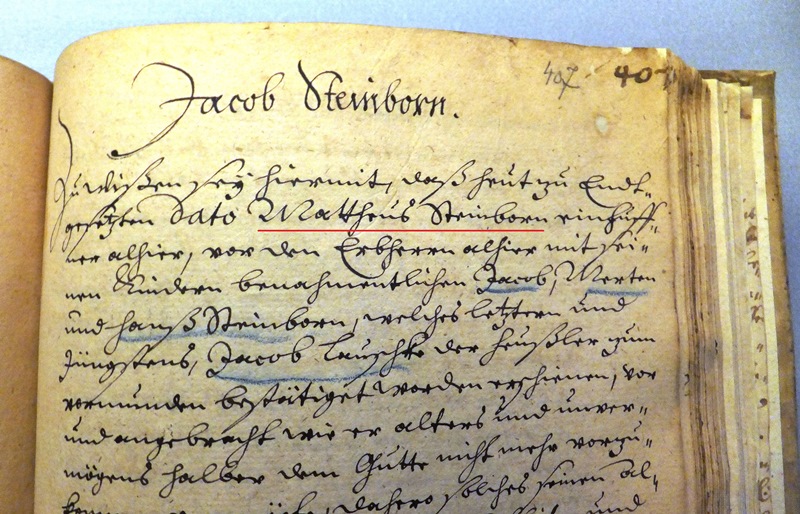 407 407
Jacob Steinborn.
Zu wißen sey hiermit, daß heut zu Endt-
gesetzten dato Mattheus Steinborn einhuff-
ner alhier, vor den Erbherrn alhier mit sei-
nen Kindern benahmentlichen Jacob, Merten
und Hanß Steinborn, welches letztern und
Jüngstens, Jacob Lauschke der heußler zum
vormunden bestätiget worden erschienen, vor
und angebracht wie er alters und unver-
mögens halber dem Gutte nicht mehr vorzu-
dahero solches seinen äl-
und